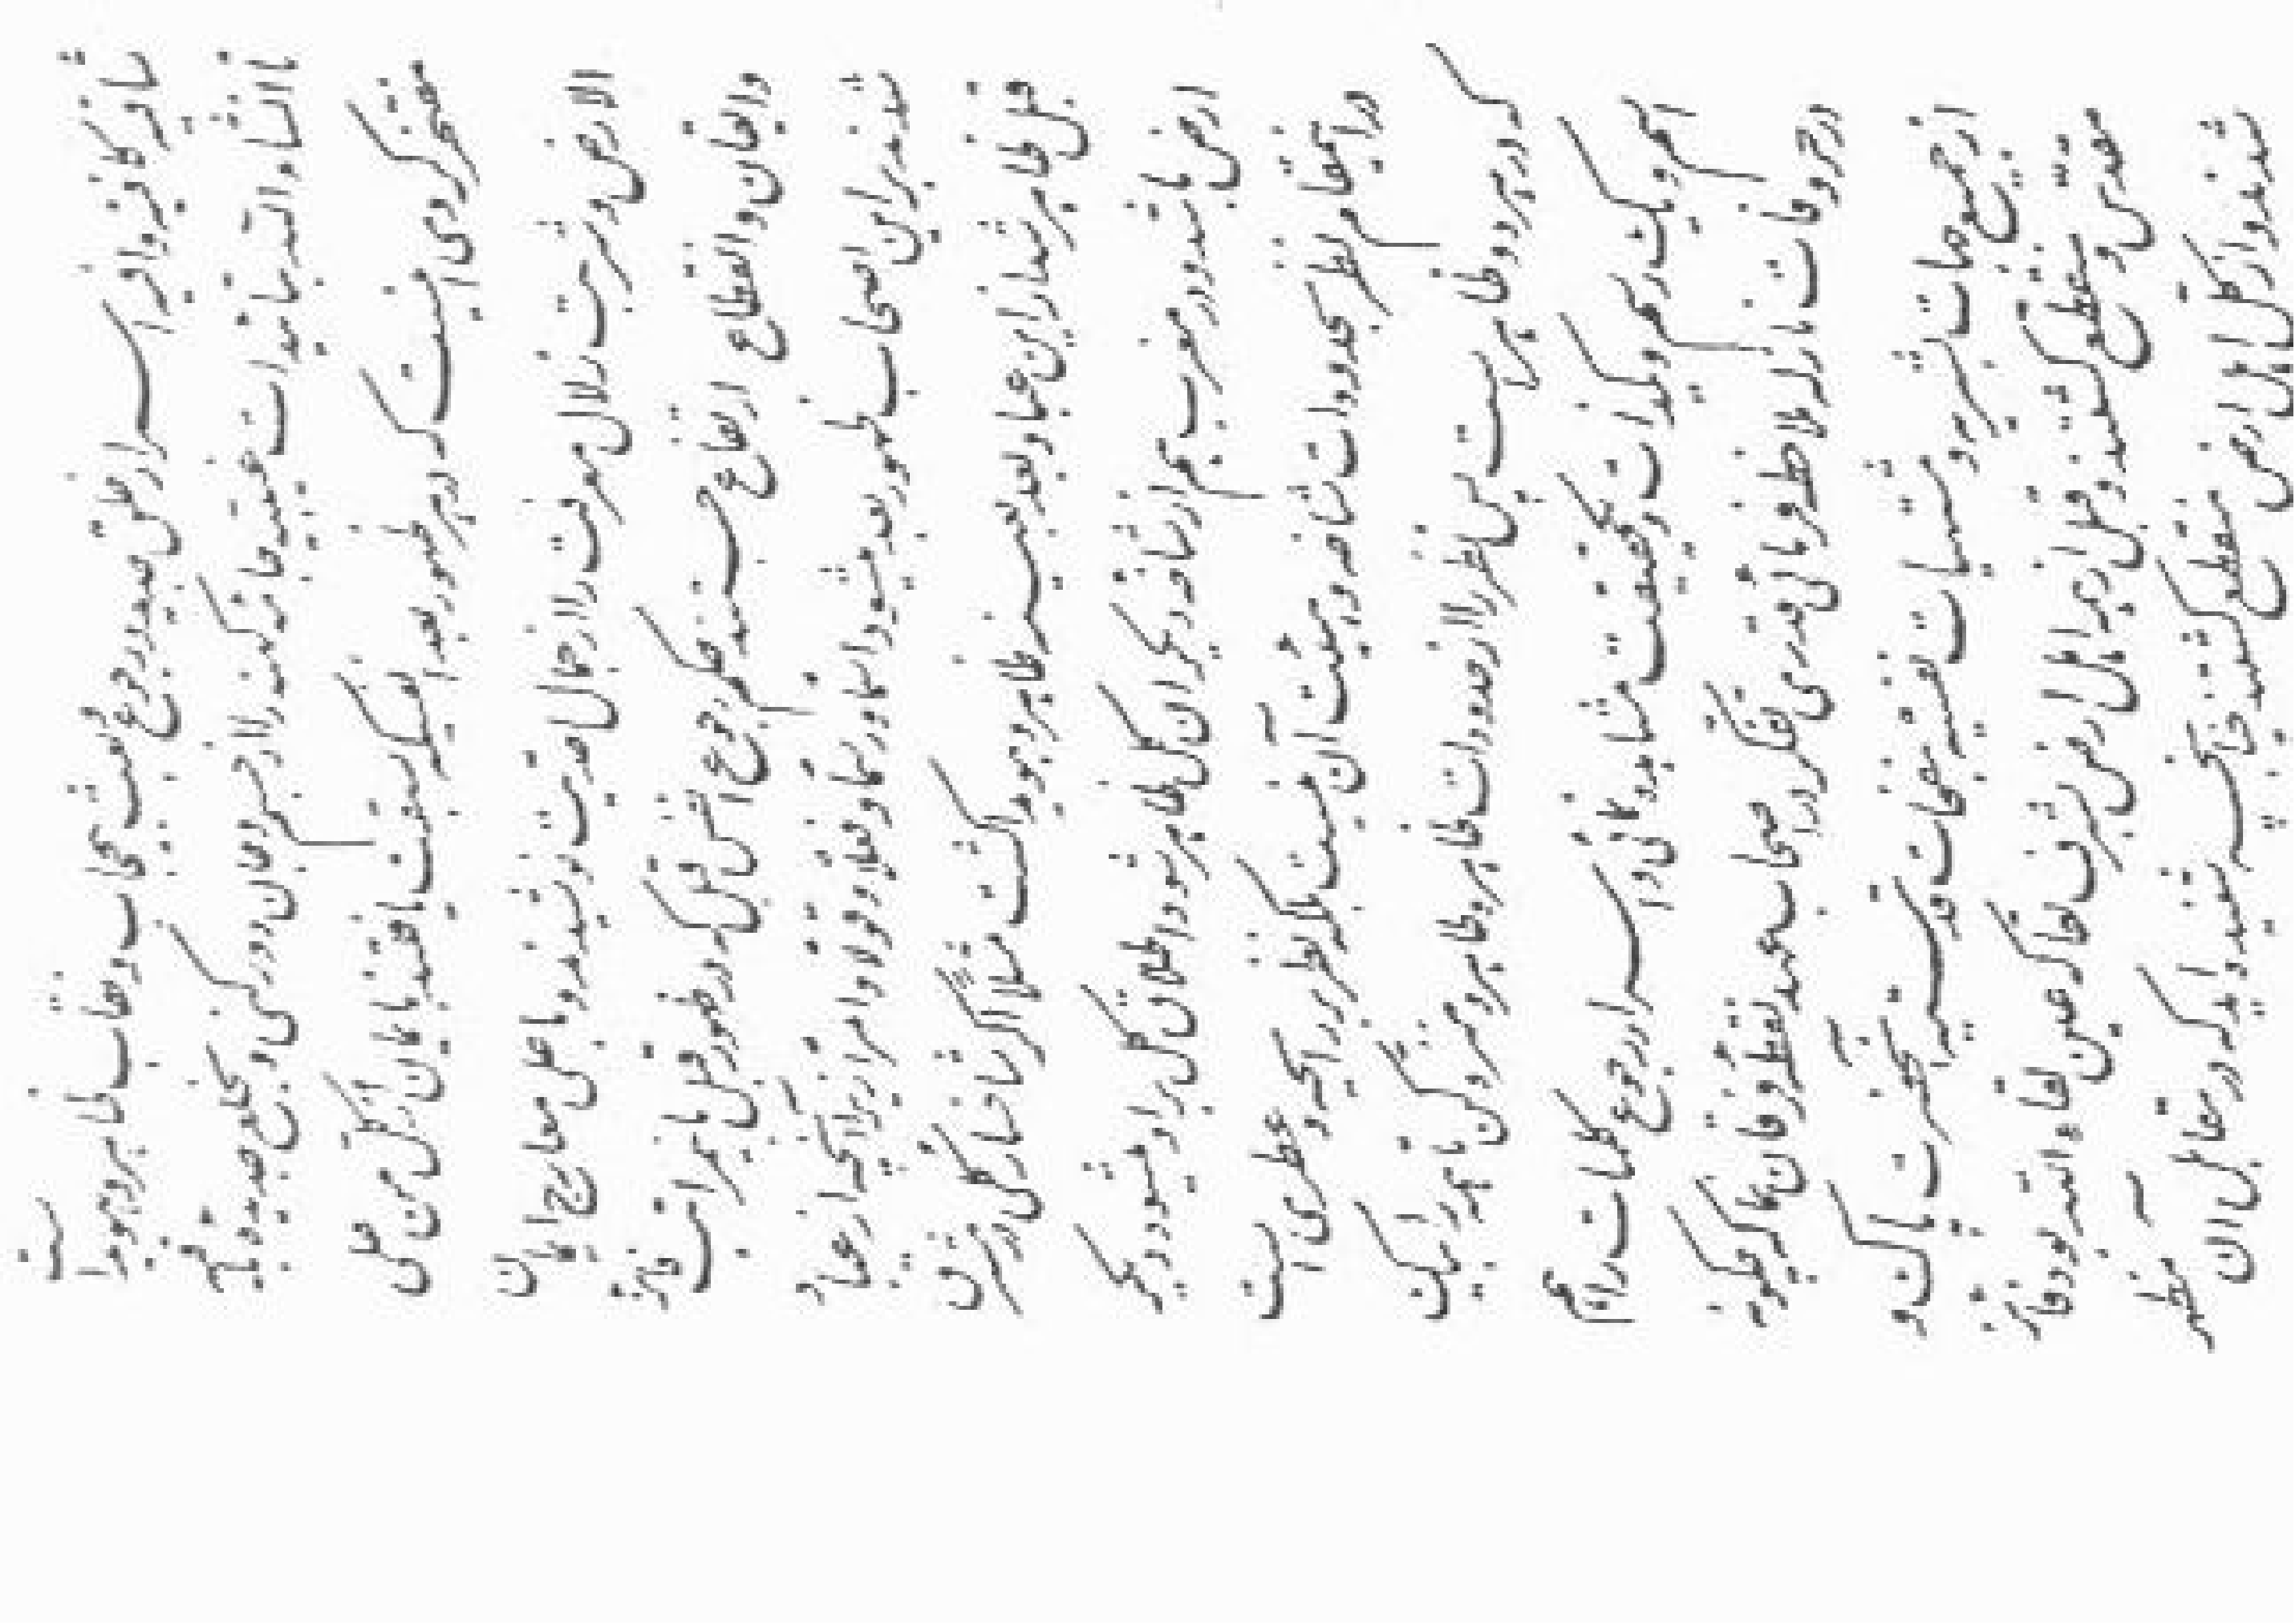 شافیه کافیه وافیه اسرار خلق جدید و رجوع و بعث بیحجاب و نقاب ظاهر و هویدا است
انشاء الله بتأییدات غیبیه جامه کهنه را از جسم و جان دور کنی و بخلع جدیده باقیه
مفتخر گردی اینست که در هر ظهور بعد انفسیکه سبقت یافتند بایمان از کل من علی
الارض و شربت زلال معرفت را از جمال احدیت نوشیدند و باعلی معارج ایمان
و ایقان و انقطاع ارتقاع جستند حکم رجوع انفس قبل که در ظهور قبل باین مراتب فائز
شدند بر این اصحاب ظهور بعد میشود اسما و رسما و فعلا و قولا و امرا زیرا آنچه از عباد
قبل ظاهر شد از این عباد بعد بعینه ظاهر و هویدا گشت مثلا اگر شاخسار گلی در مشرق
ارض باشد و در مغرب هم از شاخه دیگر آن گل ظاهر شود اطلاق گل بر او میشود دیگر
در اینمقام نظر بحدودات شاخه و هیئت آن نیست بلکه نظر برائحه و عطری است
که در هر دو ظاهر است پس نظر را از حدودات ظاهره طاهر و منزه کن تا همه را بیک
اسم و یک رسم و یکذات و یکحقیقت مشاهده نمائی و اسرار رجوع کلمات را هم
در حروفات نازله ملاحظه فرمائی قدری تفکر در اصحاب عهد نقطه فرقان نما که چگونه
از جمیع جهات بشریه و مشتهیات نفسیه بنفحات قدسیه آنحضرت پاک و
مقدس و منقطع گشتند و قبل از همه اهل ارض بشرف لقا که عین لقاء الله بود فائز
شدند و از کل اهل ارض منقطع گشتند چنانچه شنیده‌اید که در مقابل آن مظهر